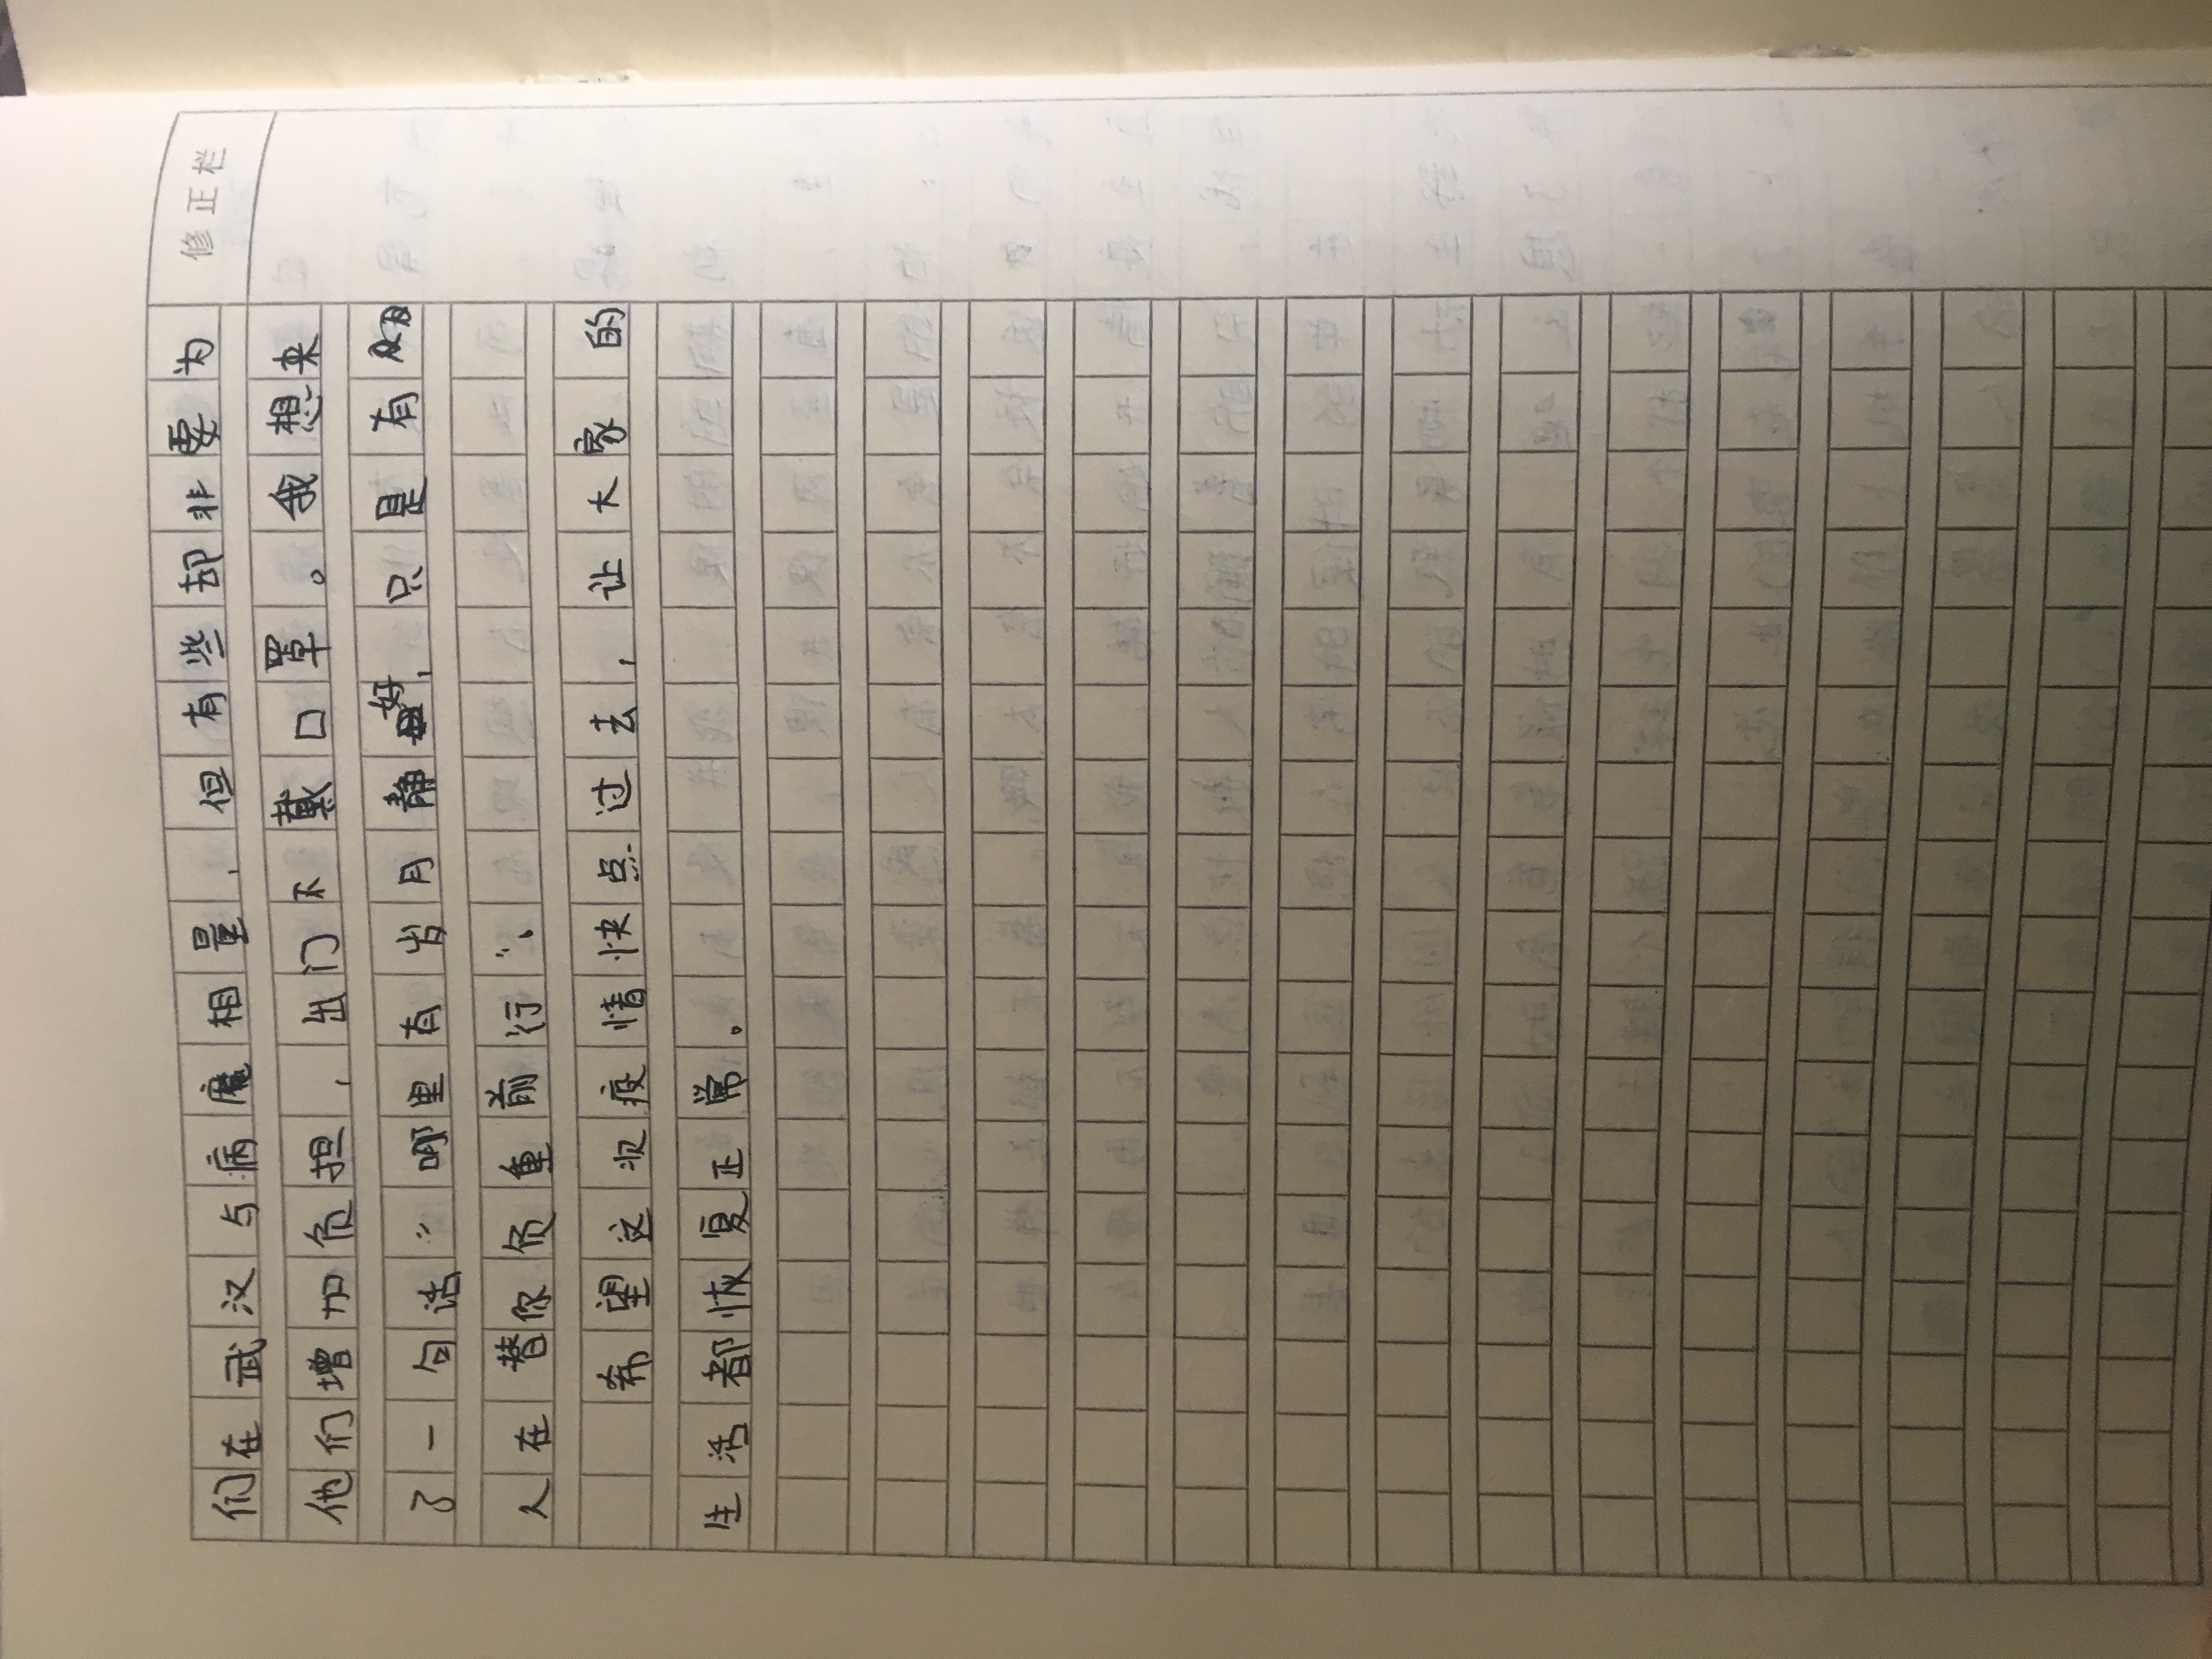 修正栏
们在武汉与病魔相量，但有些却非要为
他们增加负担，出门不戴口罩。我想来
了一句话“哪里有岁月静好，只是有
人在替你负重前行”、
希望这次疫情快点过去，让大家的
生活都恢复正常。